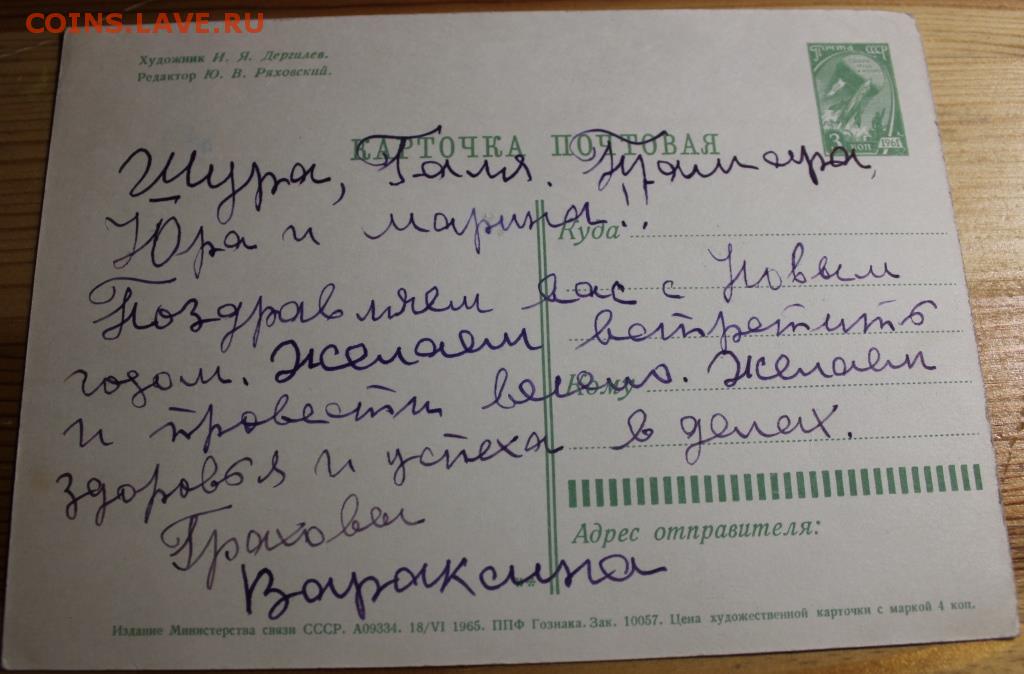 COINS.LAVE.RU
Художник И. Я. Дергилев.
Редактор Ю. В. Ряховский.
ПОЧТА СССР
3 КОП 1961
КАРТОЧКА ПОЧТОВАЯ
Шура, Галя. Тамара,
Юра и марина!!
Куда
Поздравляем вас с Новым
годом. Желаем встретить
и провести весело. Желаем
Кому
здоровья и успеха в делах.
Граховы
Вараксина
Адрес отправителя:
Издание Министерства связи СССР. А09334. 18/VI 1965. ППФ Гознака. Зак. 10057. Цена художественной карточки с маркой 4 коп.